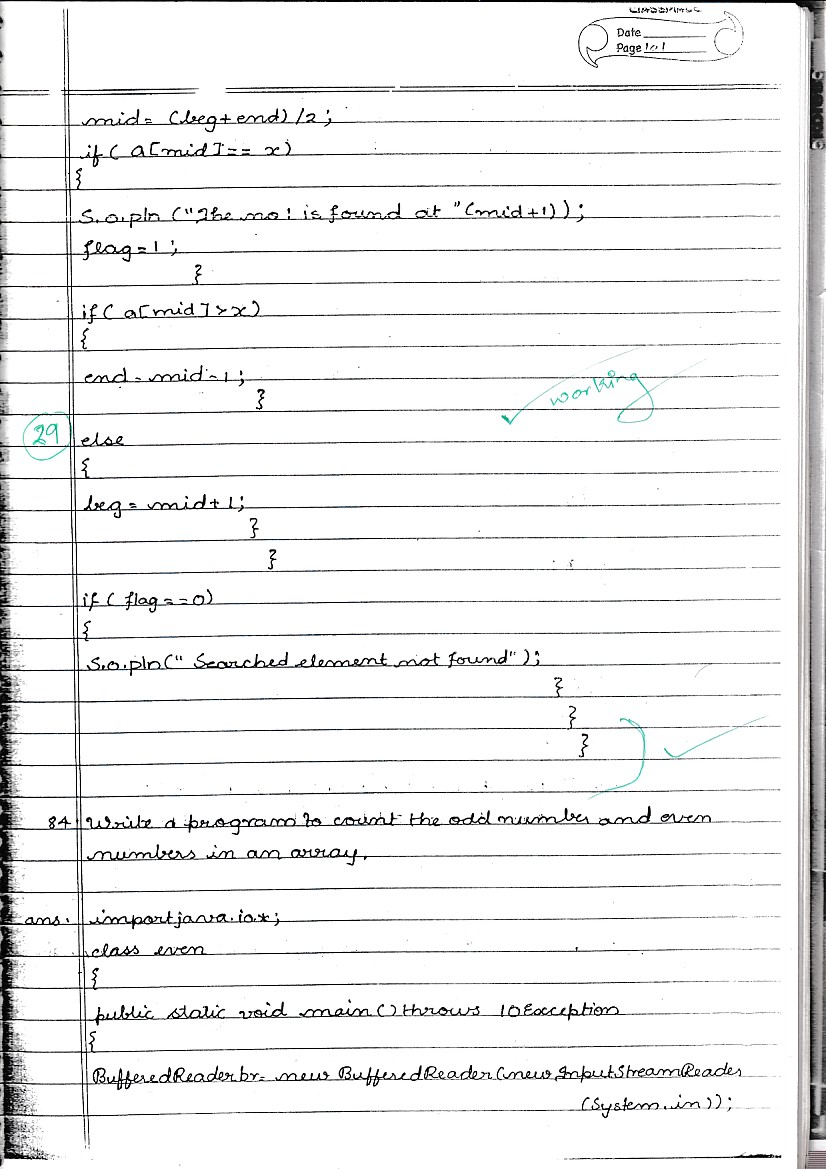 CLASSMATE
Date
Page 101
mid= (beg+end)/2;
if( a[mid]== x)
{
S.o.pln ("The no! is found at "(mid+1));
flag=1;
}
if( a[mid]>x)
{
end=mid-1;
}
working
29
else
{
beg=mid+1;
}
}
if( flag==0)
{
S.o.pln(" Searched element not found");
}
}
}
84 Write a program to count the odd number and even
numbers in an array.
ans. import java.io.*;
class even
{
public static void main()throws IOException
{
BufferedReader br= new BufferedReader(new InputStreamReader
(System.in));